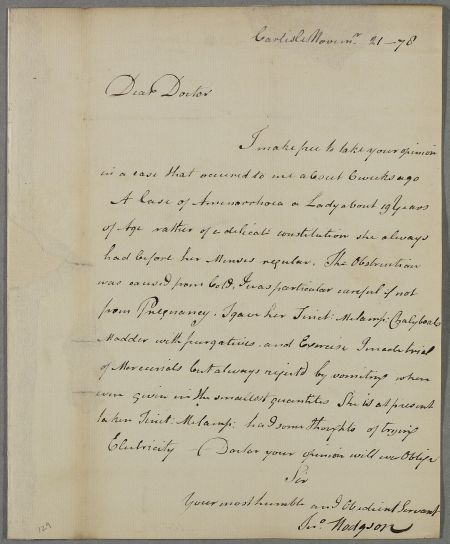 Carlisle Novemr. 21 - 78
Dear Doctor
I make free to take your opinion
in a case that occured to me about 6 weeks ago
A Case of Amenorrhoea a Lady about 19 Years
of Age rather of a delicate constitution she always
had before her Menses regular. The Obstruction
was caused from Cold, I was particular careful if not
from Pregnancy. I gave her Tinct: Melamp: Chalybeats
Madder with purgatives and Exercise I made trial
of Mercurials but always rejectd by vomiting when
ever given in the smallest quantities She is at present
taken Tinct. Melamp: had some thoughts of trying
Electricity - Doctor your opinion will ever Oblige
Sir
Your most humble and Obedient Servant
Jno. Hodgson
129